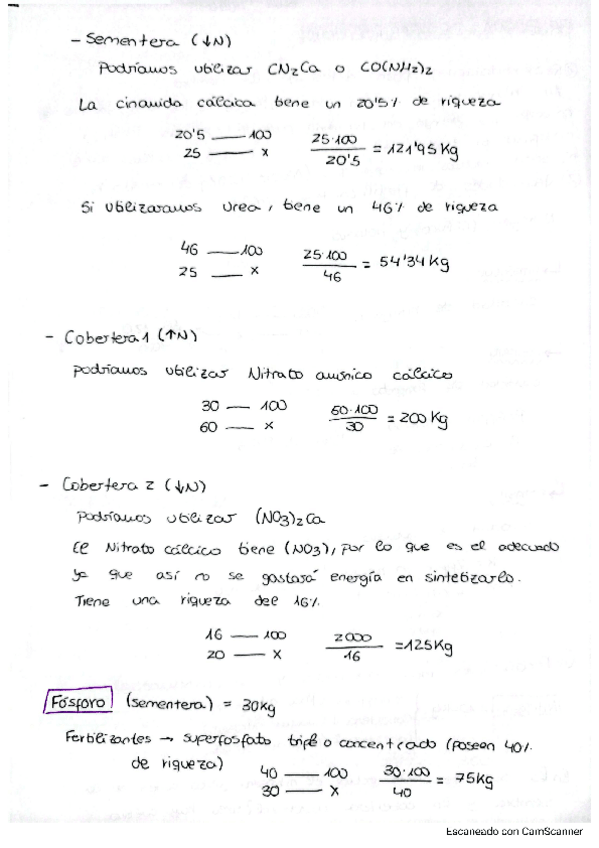 - Sementera (↓N)
Podríamos utilizar CN2Ca o CO(NH2)2
La cinamida cálcica tiene un 20'5% de riqueza
20'5 — 100
25 — x
25·100 / 20'5 = 121'95 Kg
Si utilizaramos urea, tiene un 46% de riqueza
46 — 100
25 — x
25·100 / 46 = 54'34 Kg
- Cobertera 1 (↑N)
Podríamos utilizar Nitrato amónico cálcico
30 — 100
60 — x
60·100 / 30 = 200 Kg
- Cobertera 2 (↓N)
Podríamos utilizar (NO3)2Ca
El Nitrato cálcico tiene (NO3), por lo que es el adecuado
ya que así no se gastará energía en sintetizarlo.
Tiene una riqueza del 16%
16 — 100
20 — x
2000 / 16 = 125 Kg
Fósforo (sementera) = 30 Kg
Fertilizantes → superfosfato triple o concentrado (poseen 40%
de riqueza)
40 — 100
30 — x
30·100 / 40 = 75 Kg
Escaneado con CamScanner